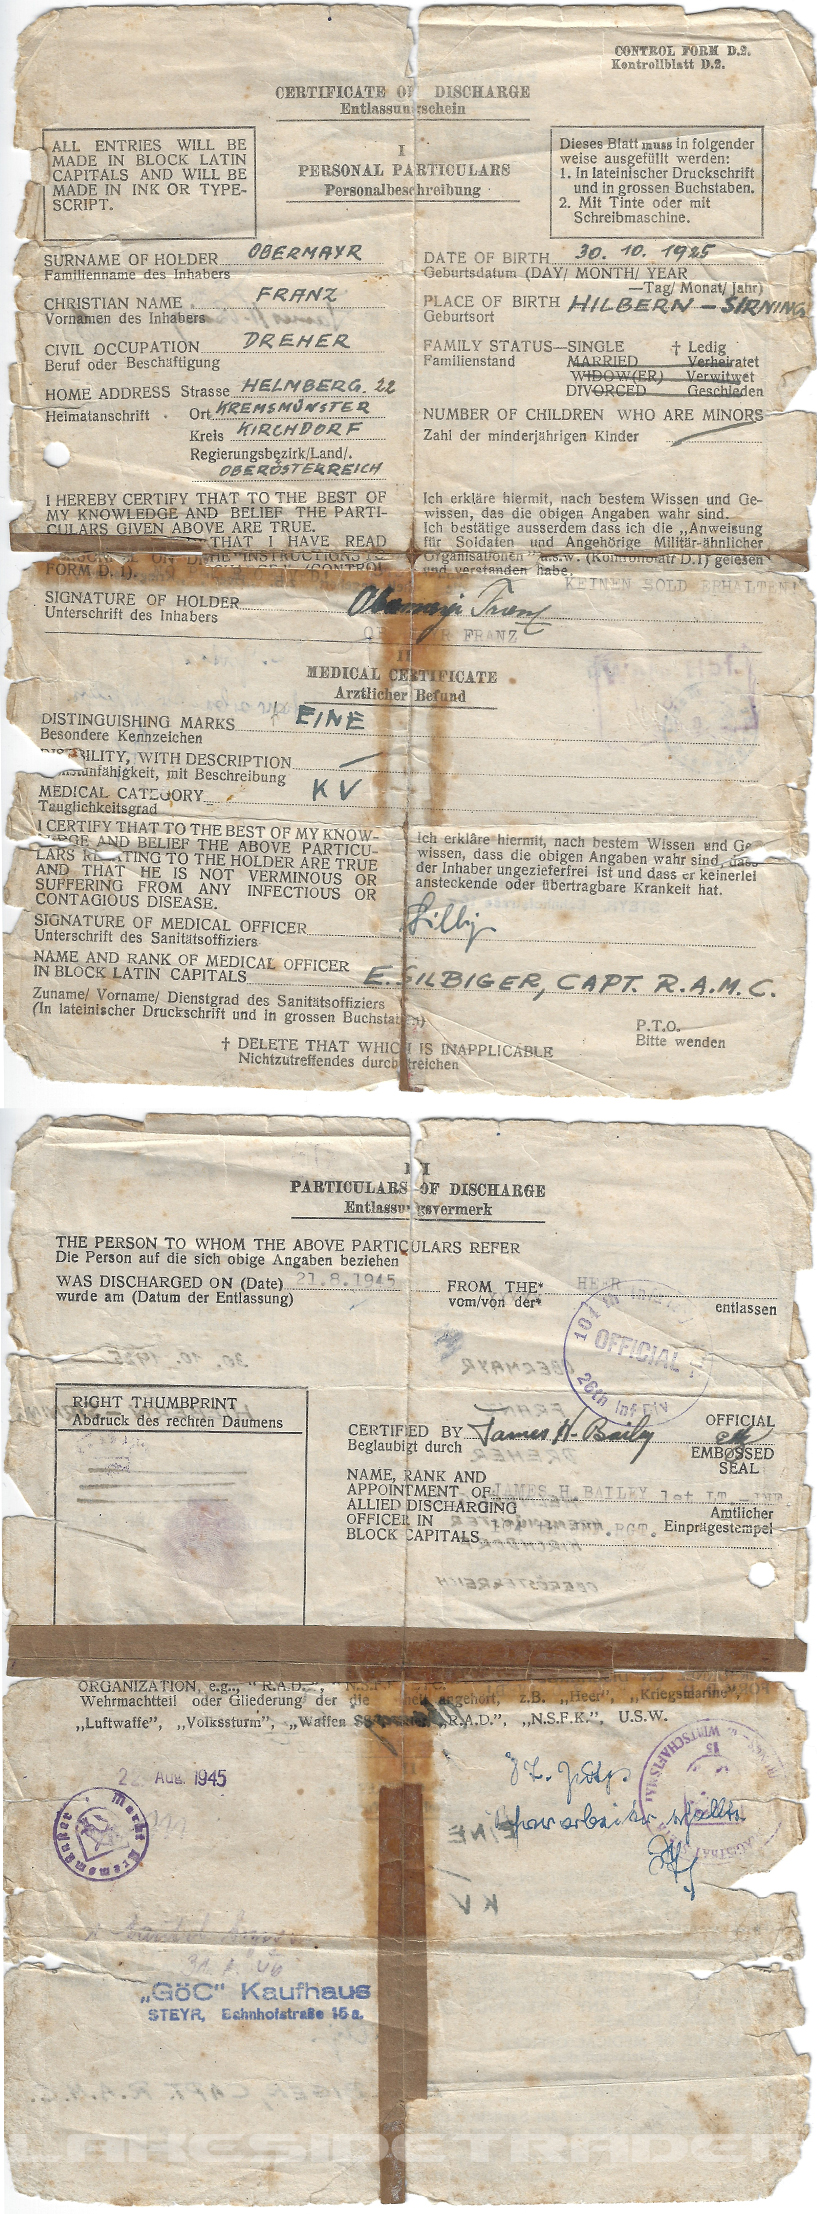 CONTROL FORM D.2.
Kontrollblatt D.2.
CERTIFICATE OF DISCHARGE
Entlassungschein
ALL ENTRIES WILL BE
MADE IN BLOCK LATIN
CAPITALS AND WILL BE
MADE IN INK OR TYPE-
SCRIPT.
I
PERSONAL PARTICULARS
Personalbeschreibung
Dieses Blatt muss in folgender
weise ausgefüllt werden:
1. In lateinischer Druckschrift
und in grossen Buchstaben.
2. Mit Tinte oder mit
Schreibmaschine.
SURNAME OF HOLDER OBERMAYR
Familienname des Inhabers
CHRISTIAN NAME FRANZ
Vornamen des Inhabers
CIVIL OCCUPATION DREHER
Beruf oder Beschäftigung
HOME ADDRESS Strasse HELMBERG. 22
Heimatanschrift Ort KREMSMÜNSTER
Kreis KIRCHDORF
Regierungsbezirk/Land/.
OBERÖSTERREICH
DATE OF BIRTH 30. 10. 1925
Geburtsdatum (DAY/ MONTH/ YEAR
—Tag/ Monat/ Jahr)
PLACE OF BIRTH HILBERN - SIRNING
Geburtsort
FAMILY STATUS—SINGLE † Ledig
Familienstand MARRIED Verheiratet
WIDOW(ER) Verwitwet
DIVORCED Geschieden
NUMBER OF CHILDREN WHO ARE MINORS
Zahl der minderjährigen Kinder
I HEREBY CERTIFY THAT TO THE BEST OF
MY KNOWLEDGE AND BELIEF THE PARTI-
CULARS GIVEN ABOVE ARE TRUE.
THAT I HAVE READ
"INSTRUCTIONS TO
FORM D. 1). (CONTROL
Ich erkläre hiermit, nach bestem Wissen und Ge-
wissen, das die obigen Angaben wahr sind.
Ich bestätige ausserdem dass ich die „Anweisung
für Soldaten und Angehörige Militär-ähnlicher
Organisationen" u.s.w. (Kontrollblatt D.1) gelesen
und verstanden habe.
KEINEN SOLD ERHALTEN!
SIGNATURE OF HOLDER Obermayr Franz
Unterschrift des Inhabers
OBERMAYR FRANZ
II
MEDICAL CERTIFICATE
Arztlicher Befund
DISTINGUISHING MARKS † EINE
Besondere Kennzeichen
DISABILITY, WITH DESCRIPTION
Dienstunfähigkeit, mit Beschreibung
MEDICAL CATEGORY KV
Tauglichkeitsgrad
I CERTIFY THAT TO THE BEST OF MY KNOW-
LEDGE AND BELIEF THE ABOVE PARTICU-
LARS RELATING TO THE HOLDER ARE TRUE
AND THAT HE IS NOT VERMINOUS OR
SUFFERING FROM ANY INFECTIOUS OR
CONTAGIOUS DISEASE.
Ich erkläre hiermit, nach bestem Wissen und Ge-
wissen, dass die obigen Angaben wahr sind, dass
der Inhaber ungezieferfrei ist und dass er keinerlei
ansteckende oder übertragbare Krankeit hat.
SIGNATURE OF MEDICAL OFFICER
Unterschrift des Sanitätsoffiziers
NAME AND RANK OF MEDICAL OFFICER
IN BLOCK LATIN CAPITALS E. SILBIGER, CAPT. R.A.M.C.
Zuname/ Vorname/ Dienstgrad des Sanitätsoffiziers
(In lateinischer Druckschrift und in grossen Buchstaben)
P.T.O.
Bitte wenden
† DELETE THAT WHICH IS INAPPLICABLE
Nichtzutreffendes durchstreichen
III
PARTICULARS OF DISCHARGE
Entlassungsvermerk
THE PERSON TO WHOM THE ABOVE PARTICULARS REFER
Die Person auf die sich obige Angaben beziehen
WAS DISCHARGED ON (Date) 21.8.1945 FROM THE* HEER
wurde am (Datum der Entlassung) vom/von der* entlassen
OFFICIAL
26th Inf Div
RIGHT THUMBPRINT
Abdruck des rechten Daumens
CERTIFIED BY James H. Baily
Beglaubigt durch
OFFICIAL
EMBOSSED
SEAL
NAME, RANK AND
APPOINTMENT OF JAMES H. BAILEY 1st LT. INF.
ALLIED DISCHARGING
OFFICER IN
BLOCK CAPITALS
Amtlicher
Einprägestempel
ORGANIZATION, e.g., "R.A.D.",
Wehrmachtteil oder Gliederung der die angehört, z.B. „Heer", „Kriegsmarine"
„Luftwaffe", „Volkssturm", „Waffen SS „R.A.D.", „N.S.F.K.", U.S.W.
22 Aug. 1945
Markt Kremsmünster
„GöC" Kaufhaus
STEYR, Bahnhofstraße 15a.
LAKESIDETRADER